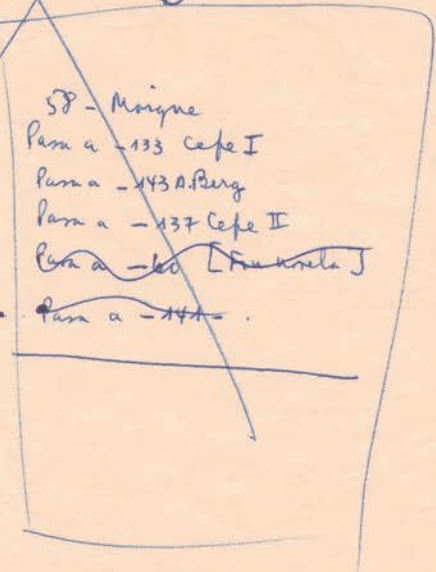 58 - Morgue
Pasa a - 133 Cefe I
Pasa a - 143 A.Berg
Pasa a - 137 Cefe II
Pasa a - 60
Pasa a - 141 - .